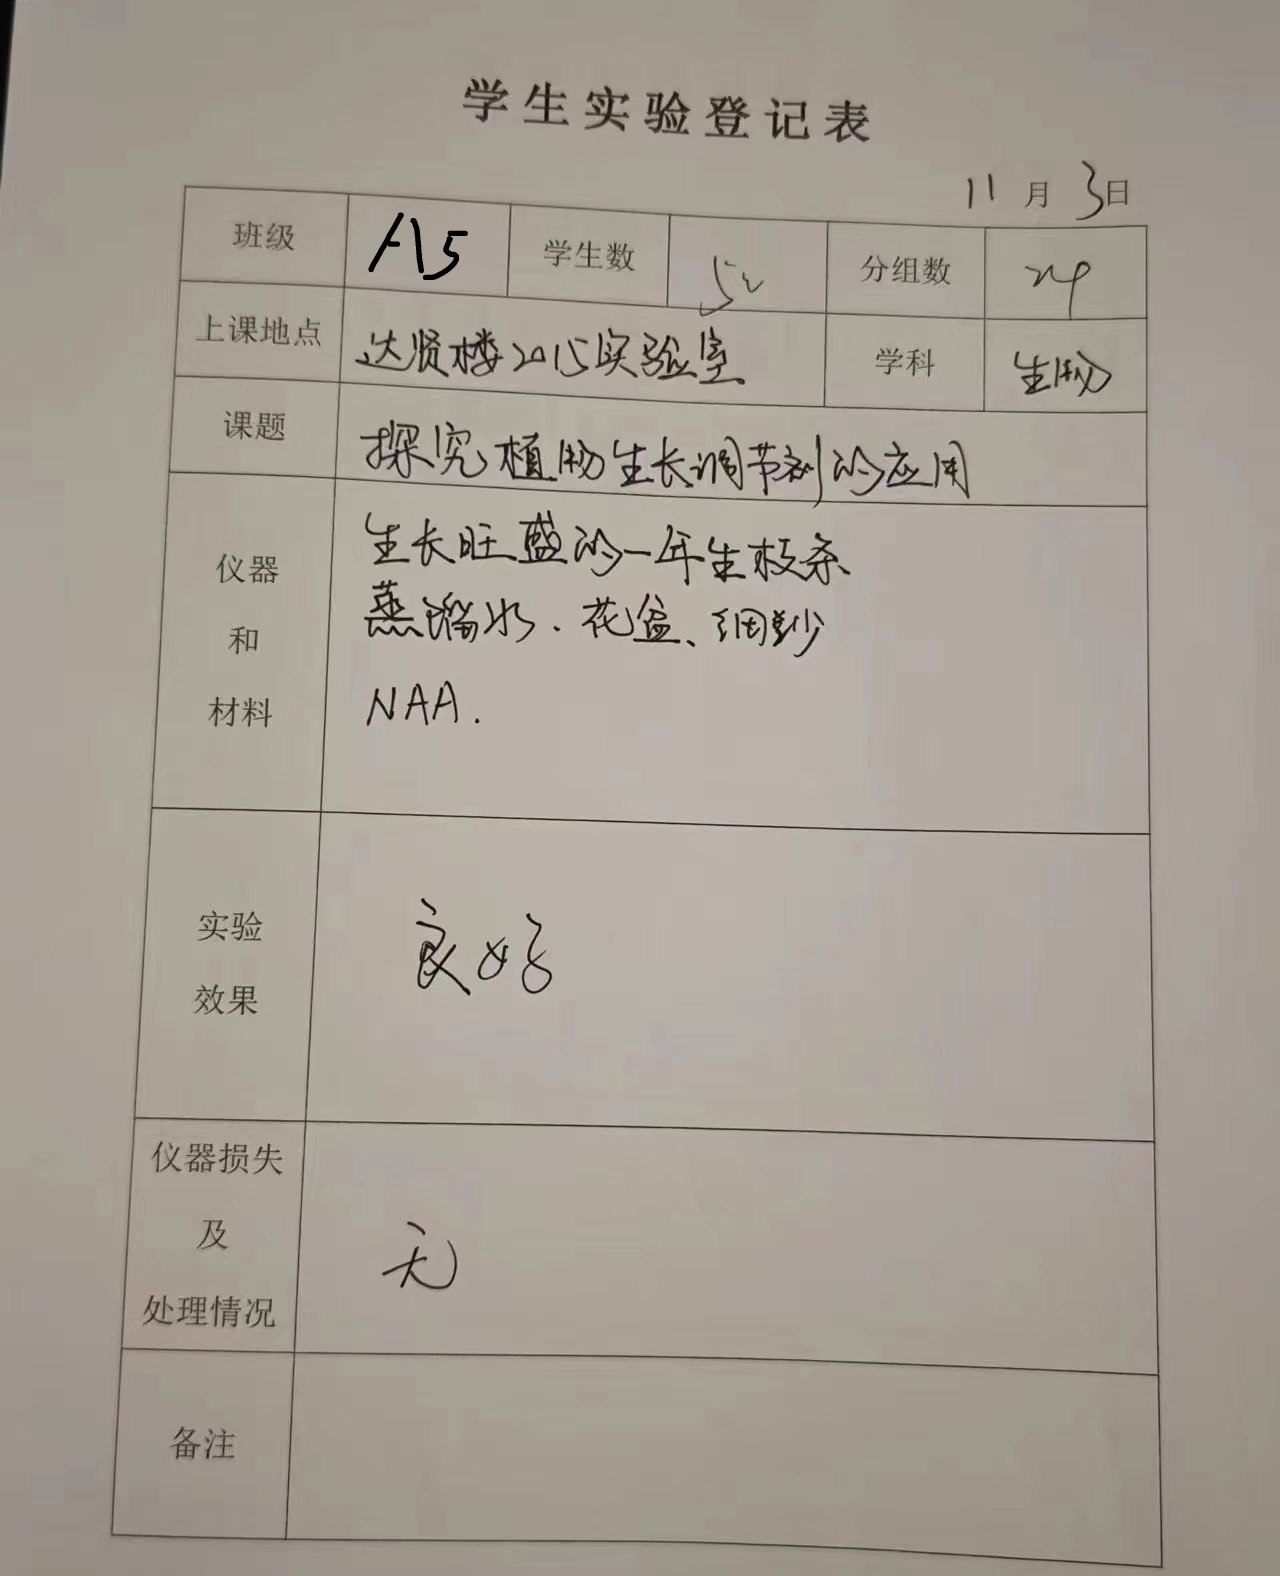 学生实验登记表
11月3日
班级 A5 学生数 52 分组数 24
上课地点 达贤楼2015实验室 学科 生物
课题 探究植物生长调节剂的应用
仪器和材料
生长旺盛的一年生枝条
蒸馏水.花盆、细纱
NAA.
实验效果
良好
仪器损失及处理情况
无
备注